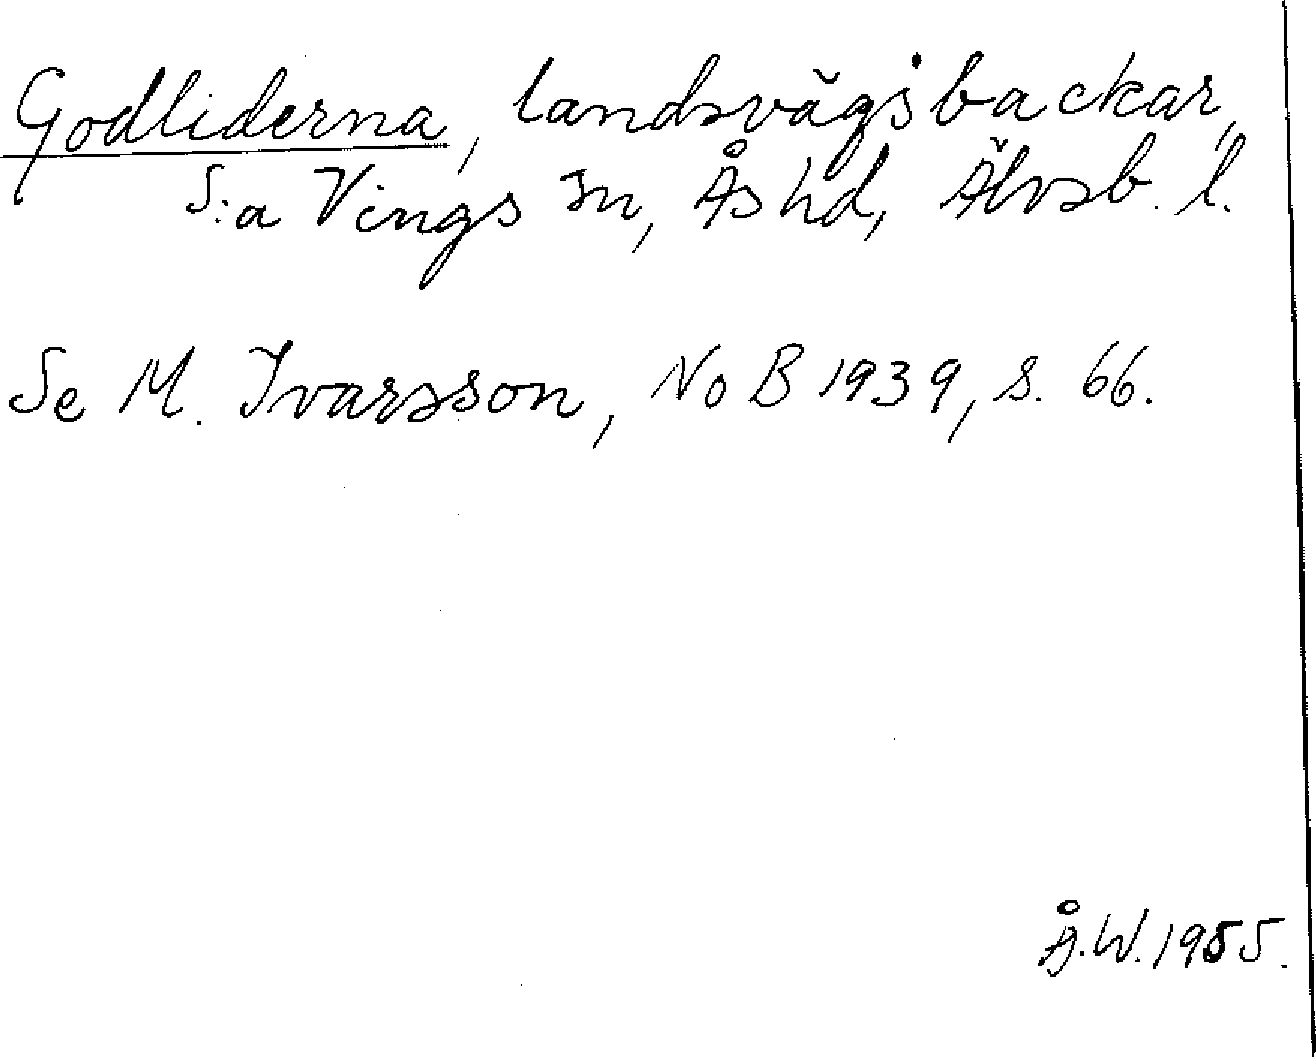 Godliderna, landsvägsbackar,
S:a Vings sn, Ås hd, Älvsb. l.
Se M. Ivarsson, NoB 1939, s. 66.
Å.W. 1955.